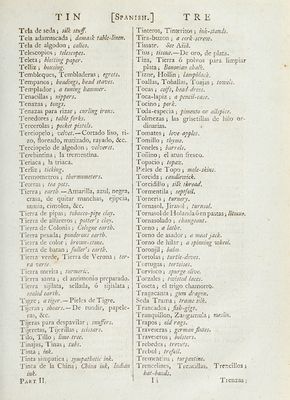 TIN [SPANISH.] TRE
Tela de seda; silk stuff.
Tela adamascada; damask table-linen.
Tela de algodon; calico.
Telescopios; telescopes.
Teleta; blotting paper.
Telliz; housing.
Tembleques, Tembladeras; egrets.
Tempanos; headings, head staves.
Templador; a tuning hammer.
Tenacillas; nippers.
Tenazas; tongs.
Tenazas para rizar; curling irons.
Tenedores; table forks.
Terciopelo, velvet.—Cortado liso, ri-
zo, floreado, matizado, rayado, &c.
Terciopelo de algodon; velveret.
Terebintina; la trementina.
Teriaca; la triaca.
Terliz; ticking.
Termometros; thermometers.
Teteras; tea pots.
Tierra; earth.—Amarilla, azul, negra,
crasa, de quitar manchas, ejipcia,
samia, cimolea, &c.
Tierra de pipas; tobacco-pipe clay.
Tierra de alfareros; potter's clay.
Tierra de Colonia; Cologne earth.
Tierra pesada; ponderous earth.
Tierra de color; brown-stone.
Tierra de batan; fuller's earth.
Tierra verde, Tierra de Verona; ter-
ra verte.
Tierra merita; turmeric.
Tierra santa; el asortimento preparado.
Tierra sijilata, sellada, ó sijilata;
sealed earth.
Tigre; a tiger.—Pieles de Tigre.
Tijeras; shears.—De tundir, papele-
ras, &c.
Tijeras para despavilar; snuffers.
Tijeretas, Tijerillas; scissars.
Tilo, Tillo; lime-tree.
Tinajas, Tinas; tubs.
Tinta; ink.
Tinta simpatica; sympathetic ink.
Tinta de la China; China ink, Indian
ink.
PART II.
Tinteros, Tinteritos; ink-stands.
Tira-buzon; a cork-screw.
Tiseate. See Azik.
Tisu; tissue.—De oro, de plata.
Tiza, Tierra ó polvos para limpiar
plata, Bavarian chalk.
Tizne, Hollin; lampblack.
Toallas, Toballas, Toajas; towels.
Tocas; caifs, head-dress.
Toca-lapiz; a pencil-case.
Tocino; pork.
Toda-especia; pimento or allspice.
Tolmeras; las griseillas de hilo or-
dinarias.
Tomates; love apples.
Tomillo; thyme.
Toneles; barrels.
Topacio; topaz.
Pieles de Topo; mole-skins.
Torcida; candlewick.
Torcidillo; silk thread.
Tormentila; septfoil.
Torneria; turnery.
Tornasol, Jirasol; turnsol.
Tornasol de Holanda ó en pastas; litmus.
Tornasolado; changeant.
Torno; a lathe.
Torno de asador; a meat jack.
Torno de hilar; a spinning wheel.
Toronjil; balm.
Tortolas; turtle-doves.
Tortugas; tortoises.
Torvisco; spurge olive.
Torzales; twisted laces.
Toseta; el trigo chamorro.
Tragacanta; gum dragon.
Seda Trama; trame silk.
Trancados; fish-gigs.
Tranquillon, Zaragatuella; maslin.
Trapos; old rags.
Traveseras; german flutes.
Traveseros; bolsters.
Trebedes; trevets.
Trebol; trefoil.
Trementina; turpentine.
Trencelines, Trenzillas, Trenzillos;
hat-bands.
I i Trenzas;